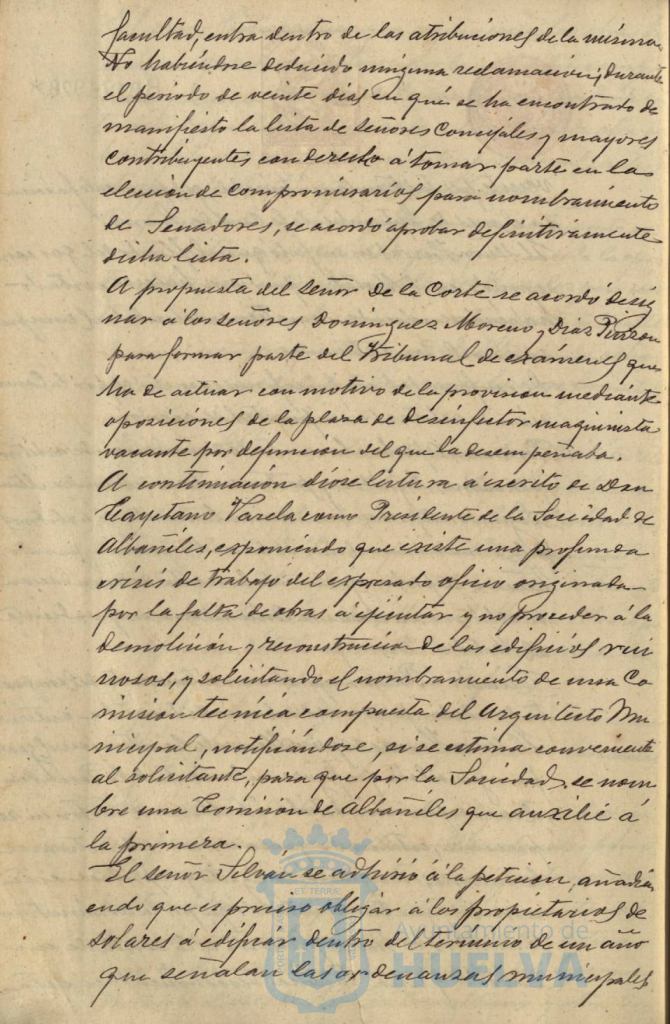 facultad, entra dentro de las atribuciones de la misma.
No habiéndose deducido ninguna reclamación, durante
el periodo de veinte dias en que se ha encontrado de
manifiesto la lista de señores Concejales y mayores
contribuyentes con derecho á tomar parte en la
elección de compromisarios para nombramiento
de Senadores, se acordó aprobar definitivamente
dicha lista.
A propuesta del señor de la Corte se acordó desig
nar á los señores Dominguez Moreno y Diaz Pinzon
para formar parte del Tribunal de exámenes que
ha de actuar con motivo de la provision mediante
oposiciones de la plaza de desinfector maquinista
vacante por defunción del que la desempeñaba.
A continuación dióse lectura á escrito de Don
Cayetano Varela como Presidente de la Sociedad de
Albañiles, exponiendo que existe una profunda
crisis de trabajo del expresado oficio originada
por la falta de obras á ejecutar y no proceder á la
demolición y reconstrucción de los edificios rui
nosos, y solicitando el nombramiento de una Co
mision tecnica compuesta del Arquitecto Mu
nicipal, notificándose, si se estima conveniente
al solicitante, para que por la Sociedad se nom
bre una Comisión de Albañiles que auxilie á
la primera.
El señor Silván se adhirió á la petición, añadi
endo que es preciso obligar á los propietarios de
solares á edificar dentro del término de un año
que señalan las ordenanzas municipales
ET TERRAE
Ayuntamiento de
HUELVA